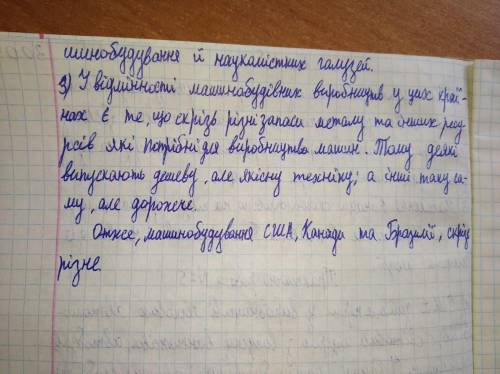 шинобудування й наукалістких галузей.
3) У відмінності машинобудівник виробництв у цих краї-
нах є те, що скрізь різні запаси металу та інших ресу-
рсів які потрібні для виробництва машин. Тому деякі
випускають дешеву, але якісну техніку; а інші таку са-
му, але дорожче.
Отже, машинобудування США, Канади та Бразилії, скрізь
різне.